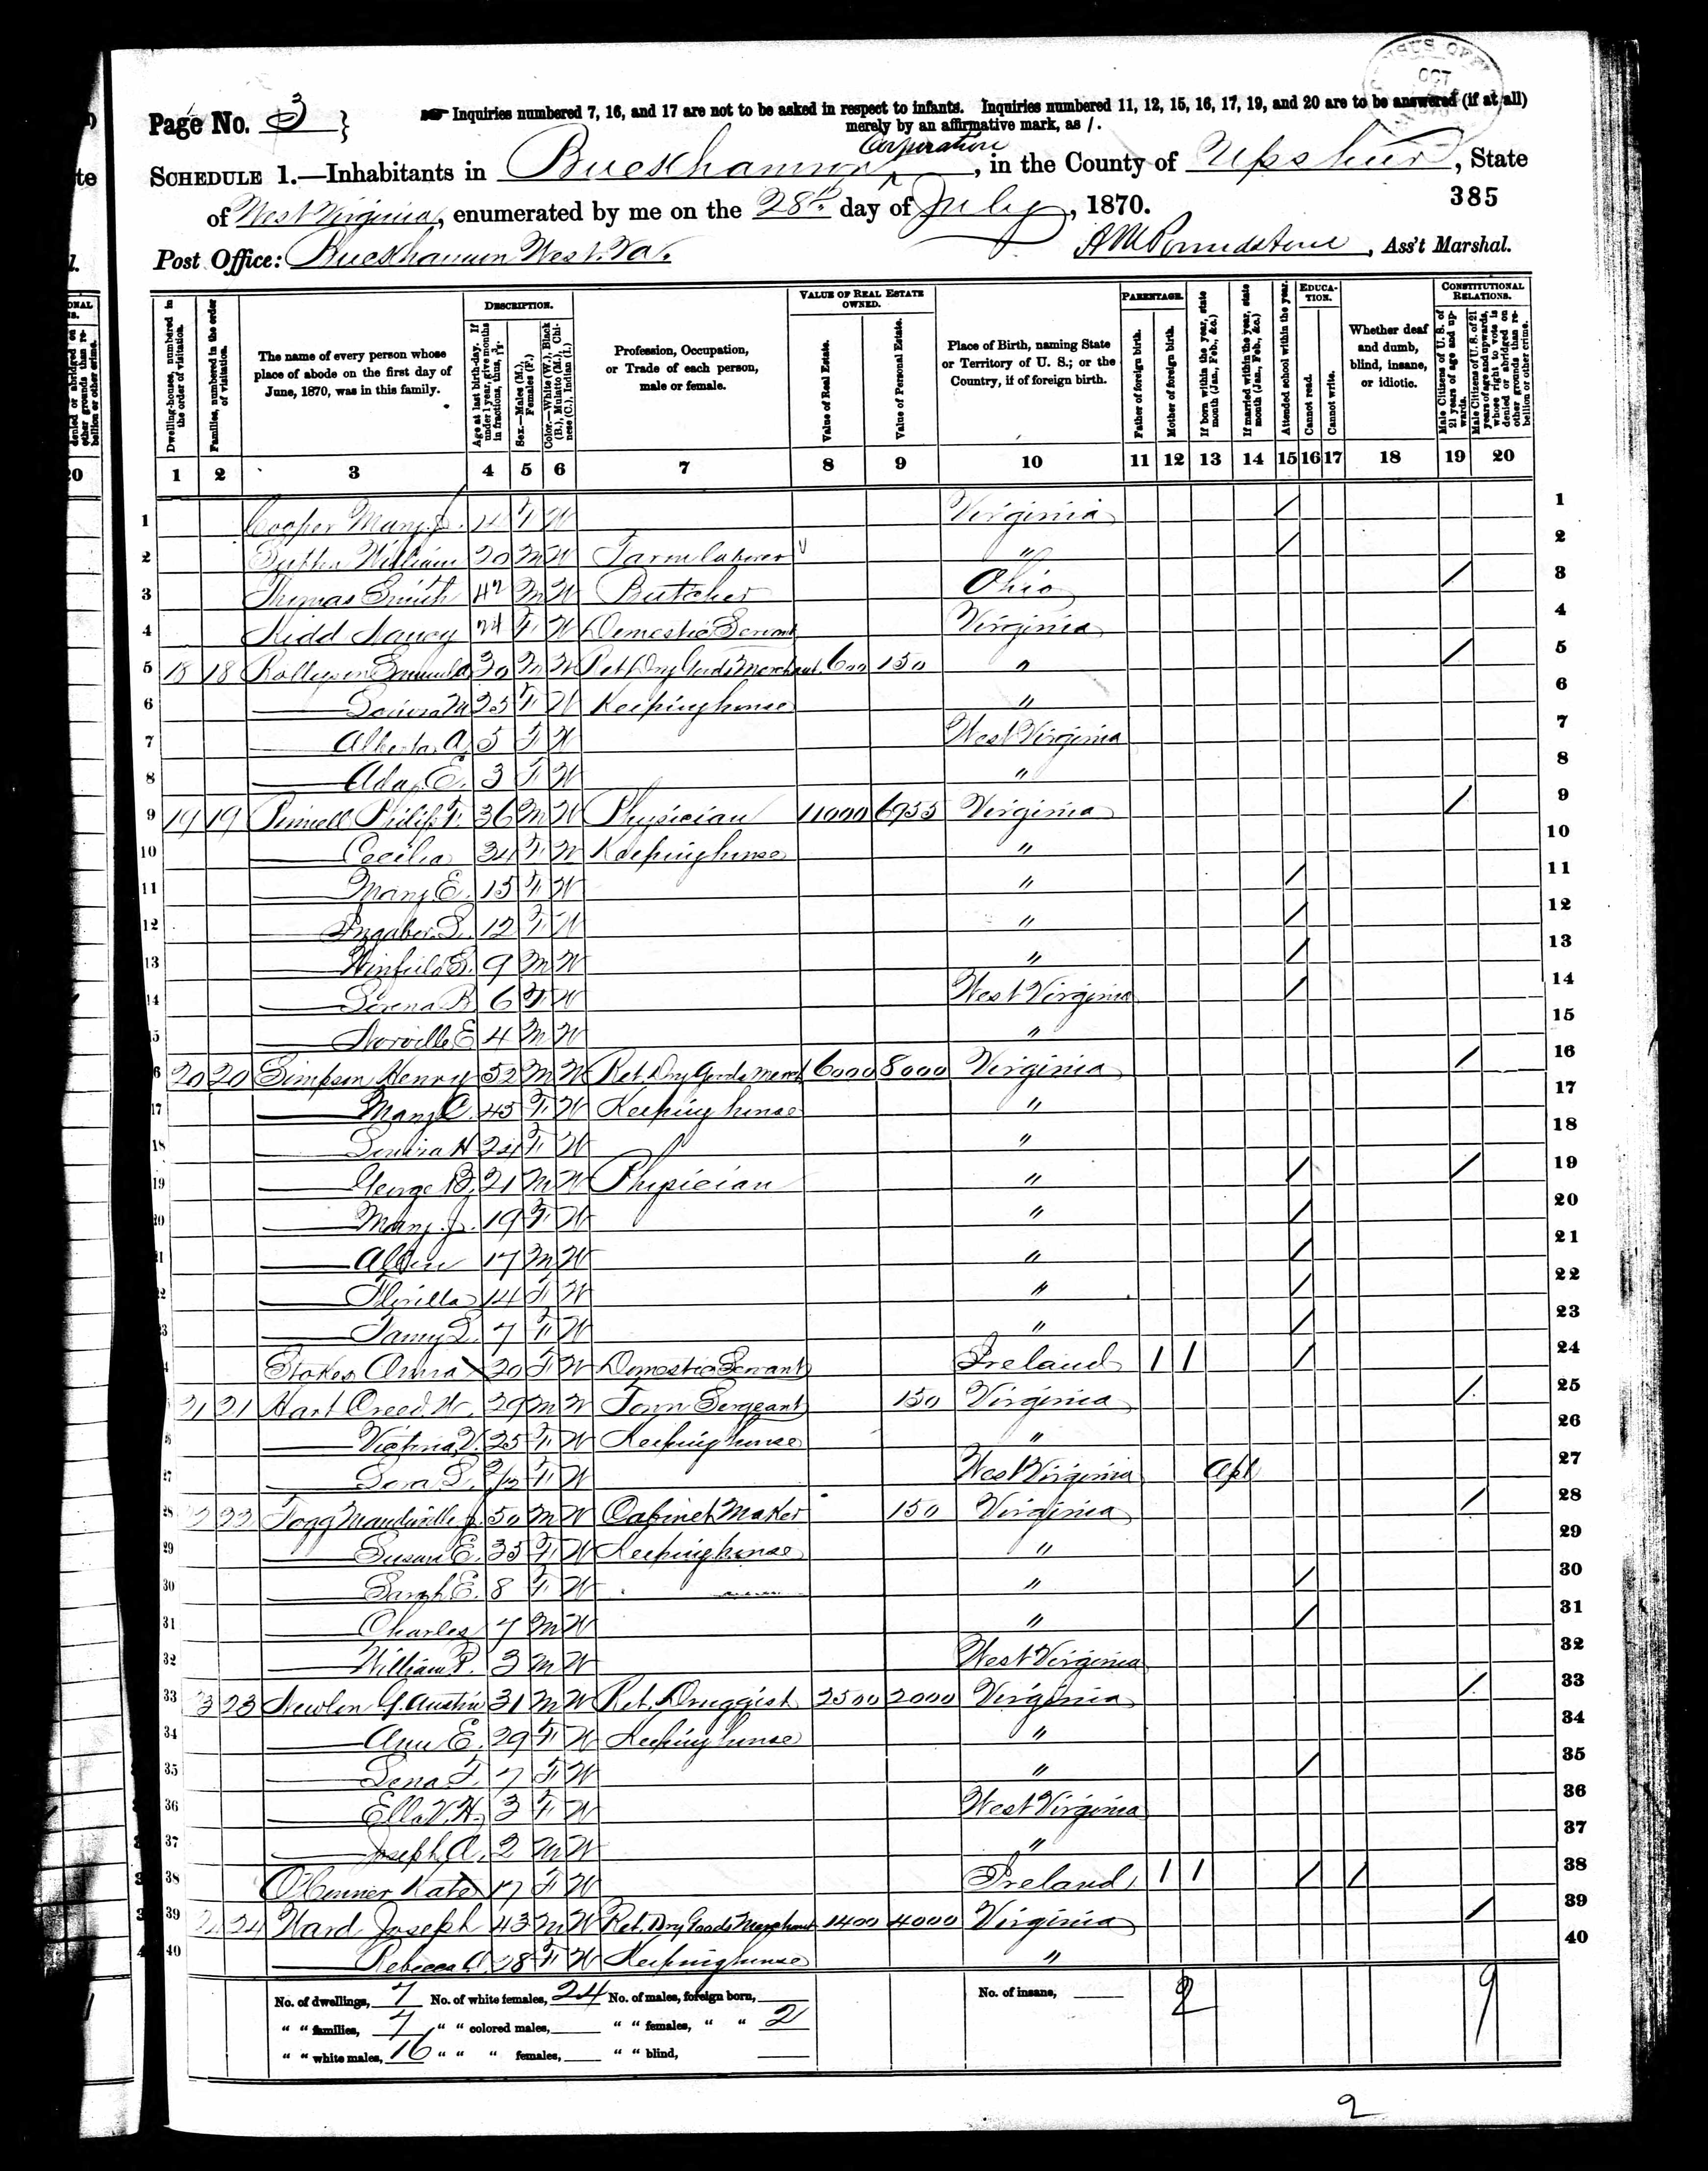 Page No. 3 } Inquiries numbered 7, 16, and 17 are not to be asked in respect to infants. Inquiries numbered 11, 12, 15, 16, 17, 19, and 20 are to be answered (if at all)
merely by an affirmative mark, as /.
Corporation
SCHEDULE 1.—Inhabitants in Buckhannon, in the County of Upshur, State
of West Virginia, enumerated by me on the 28th day of July, 1870. 385
Post Office: Buckhannon West. Va. A M Poundstone, Ass't Marshal.
Dwelling-houses, numbered in the order of visitation.
Families, numbered in the order of visitation.
The name of every person whose place of abode on the first day of June, 1870, was in this family.
DESCRIPTION.
Age at last birth-day. If under 1 year, give months in fractions, thus, 3/12.
Sex.—Males (M.), Females (F.)
Color.—White (W.), Black (B.), Mulatto (M.), Chinese (C.), Indian (I.)
Profession, Occupation, or Trade of each person, male or female.
VALUE OF REAL ESTATE OWNED.
Value of Real Estate.
Value of Personal Estate.
Place of Birth, naming State or Territory of U. S.; or the Country, if of foreign birth.
PARENTAGE.
Father of foreign birth.
Mother of foreign birth.
If born within the year, state month (Jan., Feb., &c.)
If married within the year, state month (Jan., Feb., &c.)
Attended school within the year.
EDUCATION.
Cannot read.
Cannot write.
Whether deaf and dumb, blind, insane, or idiotic.
CONSTITUTIONAL RELATIONS.
Male Citizens of U. S. of 21 years of age and upwards.
Male Citizens of U. S. of 21 years of age and upwards, whose right to vote is denied or abridged on other grounds than rebellion or other crime.
1 2 3 4 5 6 7 8 9 10 11 12 13 14 15 16 17 18 19 20
1 Cooper Mary J. 14 F W Virginia / 1
2 William 20 M W Farm laborer " / 2
3 Thomas Smith 42 M W Butcher Ohio / 3
4 Kidd Nancy 24 F W Domestic Servant Virginia 4
5 18 18 30 M W Ret. Dry Goods Merchant 600 150 " / 5
6 25 F W Keeping house " 6
7 Alberta A. 5 F W West Virginia 7
8 Ada E. 3 F W " 8
9 19 19 Pinnell Philip F. 36 M W Physician 11000 6955 Virginia / 9
10 Cecilia 34 F W Keeping house " 10
11 Mary E. 15 F W " / 11
12 12 F W " / 12
13 Winfield S. 9 M W " / 13
14 Serena B 6 F W West Virginia / 14
15 Norville E 4 M W " 15
16 20 20 Simpson Henry 52 M W Ret. Dry Goods Merch 6000 8000 Virginia / 16
17 Mary C. 45 F W Keeping house " 17
18 H 24 F W " 18
19 George B. 21 M W Physician " / / 19
20 Mary J. 19 F W " / 20
21 17 M W " / 21
22 Florilla 14 F W " / 22
23 7 F W " / 23
24 Stokes Anna 20 F W Domestic Servant Ireland 1 1 / 24
25 21 21 Hart Creed W. 29 M W Town Sergeant 150 Virginia / 25
26 Victoria V. 25 F W Keeping house " 26
27 F W West Virginia Apl 27
28 22 Fogg Mandeville J. 50 M W Cabinet Maker 150 Virginia / 28
29 Susan E. 35 F W Keeping house " 29
30 Sarah E. 8 F W " / 30
31 Charles 7 M W " / 31
32 William P. 3 M W West Virginia 32
33 23 Newlon G. Austin 31 M W Ret. Druggist 2500 2000 Virginia / 33
34 Ann E. 29 F W Keeping house " 34
35 Lena F. 7 F W " / 35
36 Ella V. H. 3 F W West Virginia 36
37 Joseph A. 2 M W " 37
38 O'Conner Kate 17 F W Ireland 1 1 / / 38
39 24 Ward Joseph 43 M W Ret. Dry Goods Merchant 1400 4000 Virginia / 39
40 Rebecca A. 28 F W Keeping house " 40
No. of dwellings, 7 No. of white females, 24 No. of males, foreign born, No. of insane, 2 9
" " families, 7 " " colored males, " " females, " " 2
" " white males, 16 " " " females, " " blind,
2